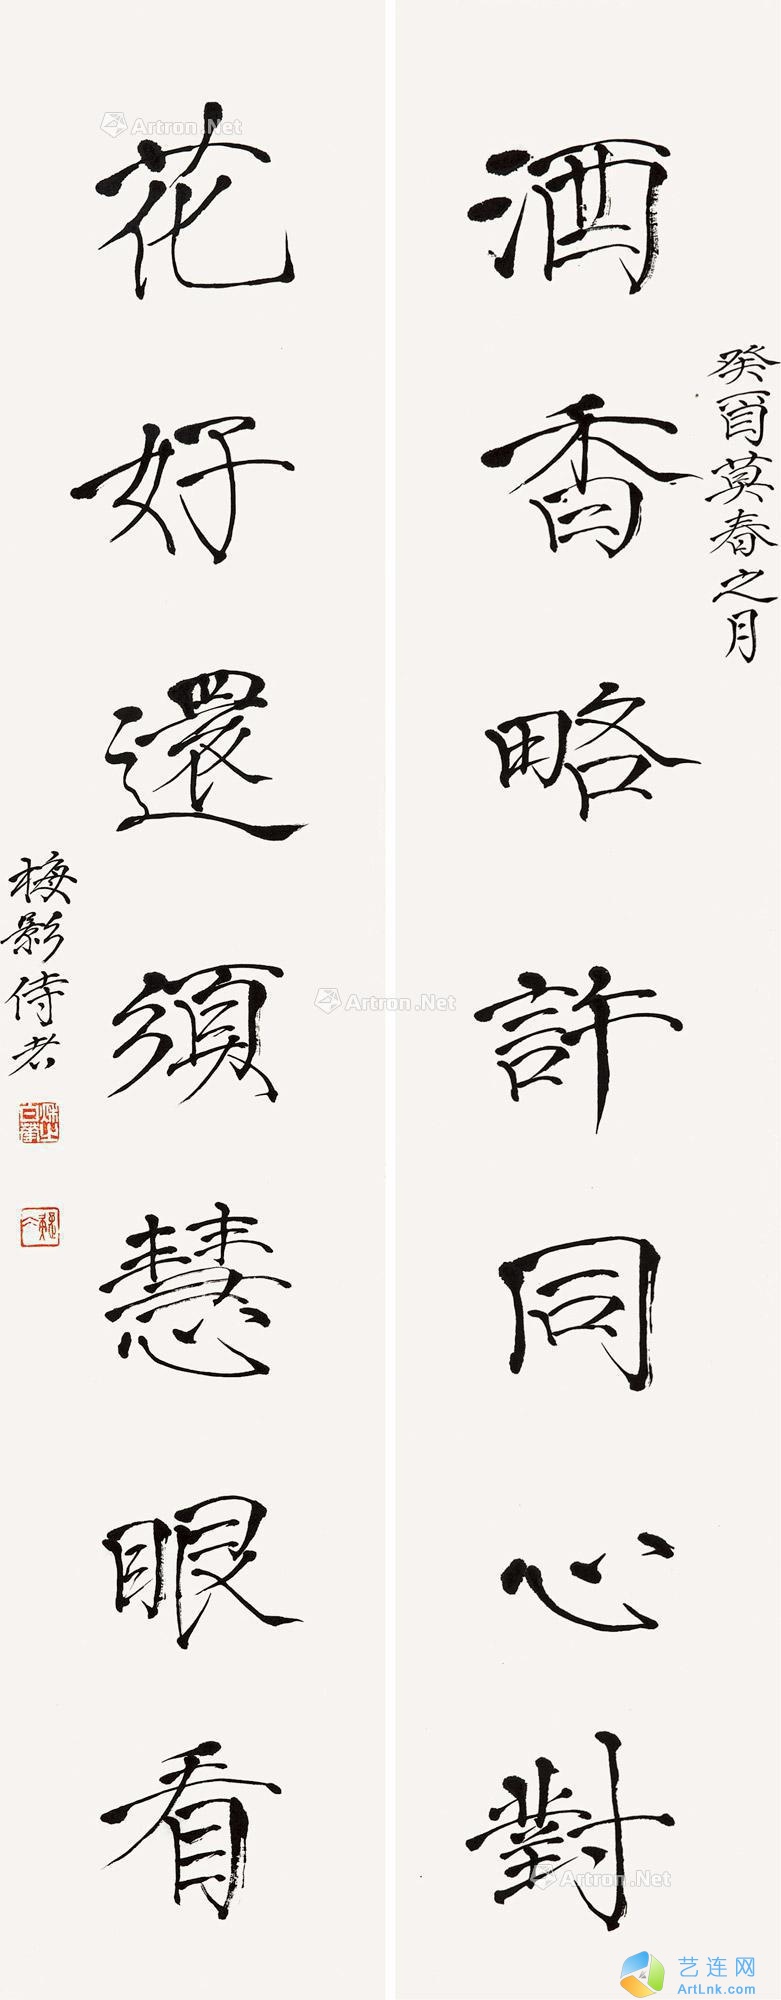 癸酉莫春之月
酒香略許同心對
花好還須慧眼看
梅影侍者
Artron.Net
Artron.Net
Artron.Net
艺连网
ArtLnk.com